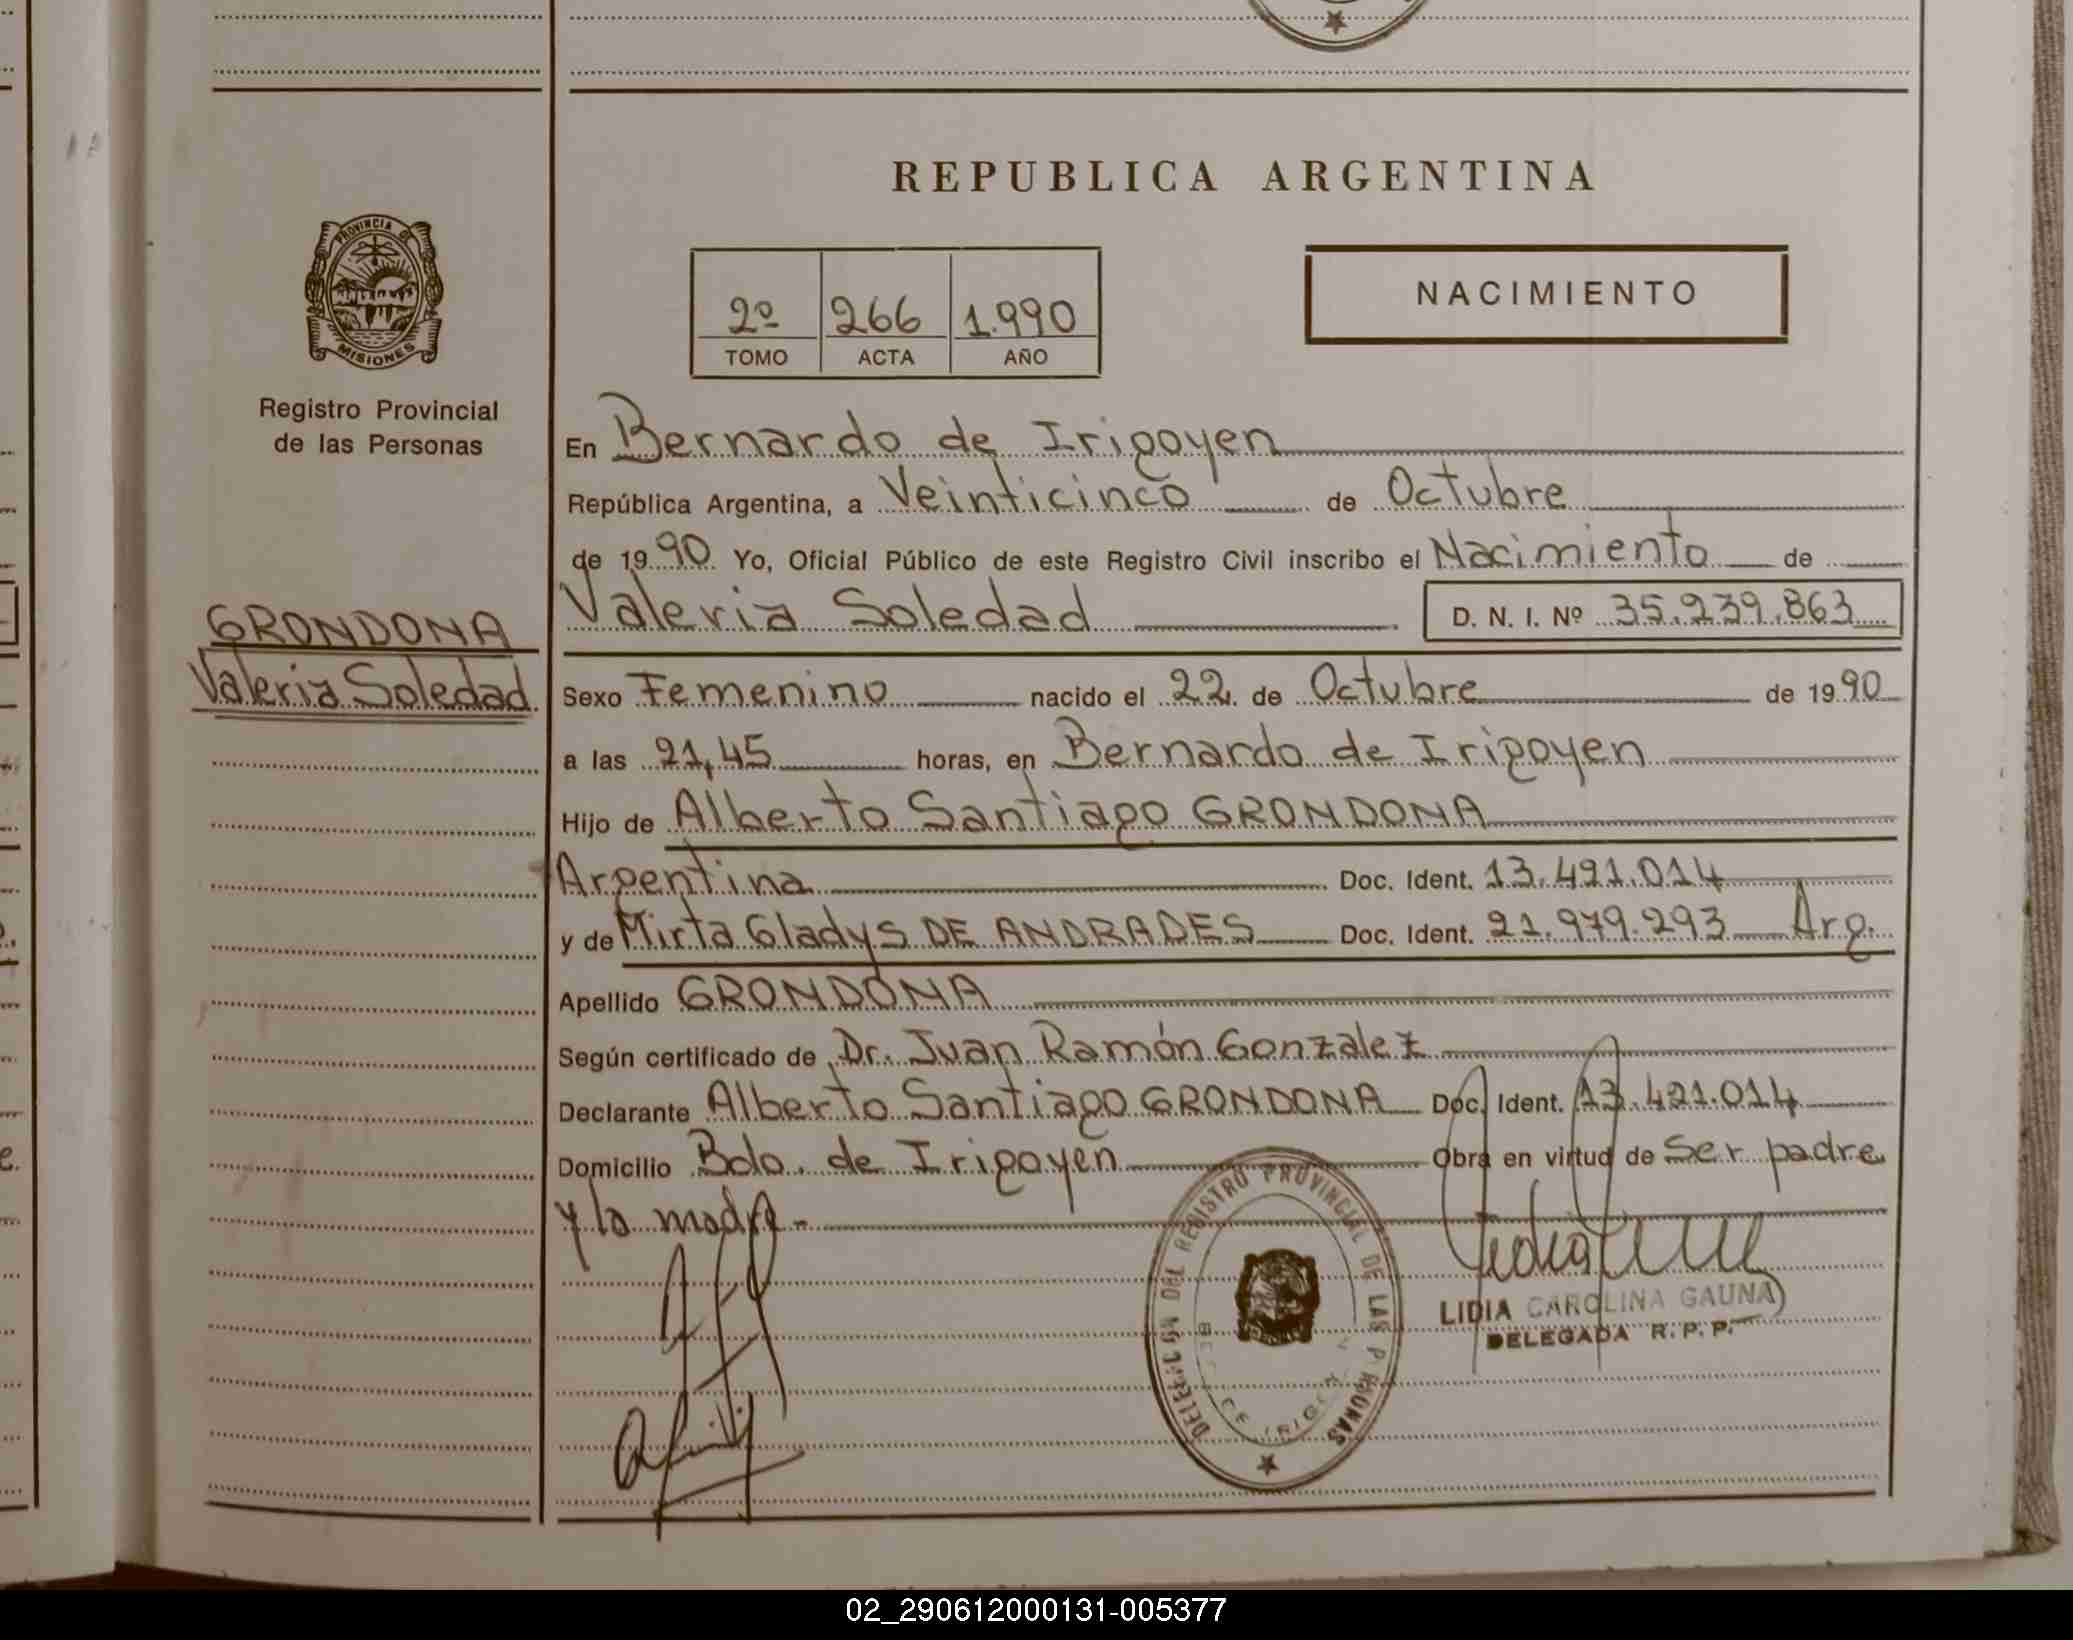 REPUBLICA ARGENTINA
PROVINCIA DE
MISIONES
Registro Provincial
de las Personas
2º 266 1.990
TOMO ACTA AÑO
NACIMIENTO
En Bernardo de Irigoyen
República Argentina, a Veinticinco de Octubre
de 1990 Yo, Oficial Público de este Registro Civil inscribo el Nacimiento de
Valeria Soledad D. N. I. Nº 35.239.863
GRONDONA
Valeria Soledad
Sexo Femenino nacido el 22 de Octubre de 1990
a las 21,45 horas, en Bernardo de Irigoyen
Hijo de Alberto Santiago GRONDONA
Argentina Doc. Ident. 13.421.014
y de Mirta Gladys DE ANDRADES Doc. Ident. 21.979.293 Arg.
Apellido GRONDONA
Según certificado de Dr. Juan Ramón Gonzalez
Declarante Alberto Santiago GRONDONA Doc. Ident. 13.421.014
Domicilio Bdo. de Irigoyen Obra en virtud de ser padre
y la madre -
DELEGACION DEL REGISTRO PROVINCIAL DE LAS PERSONAS
DE IRIGOYEN
LIDIA CAROLINA GAUNA
DELEGADA R. P. P.
02_290612000131-005377